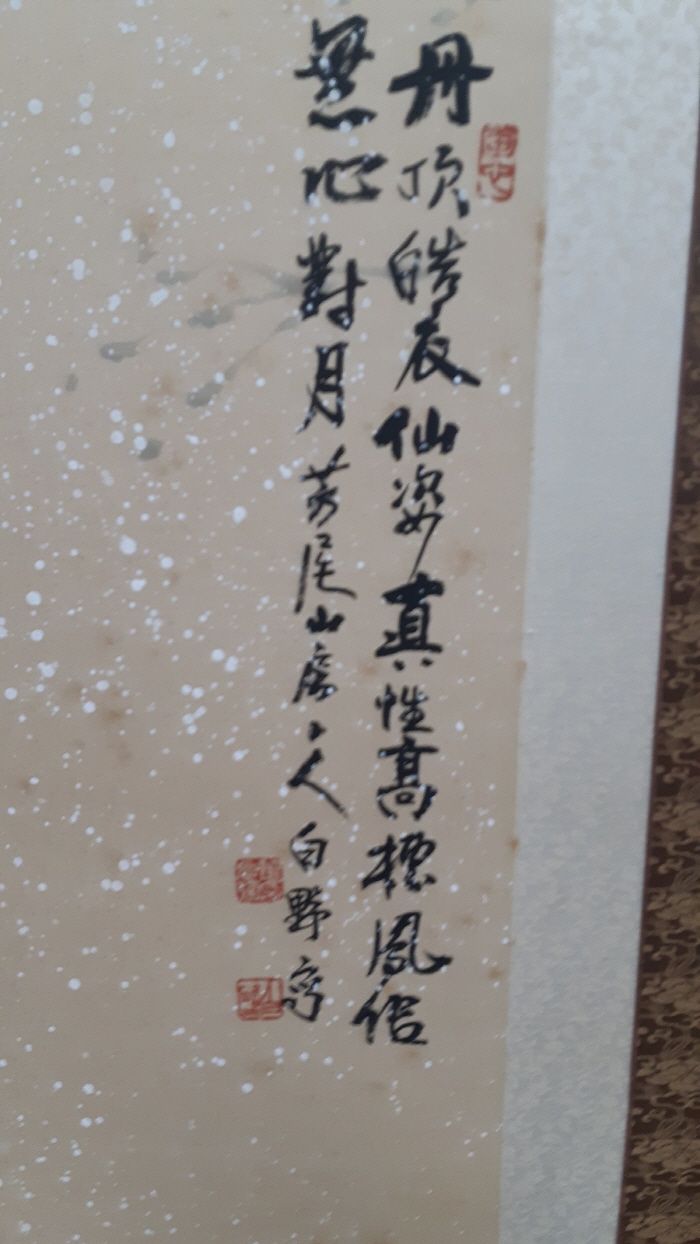 丹頂皓衣仙姿真性高標風
無心對月 尾山房人白野